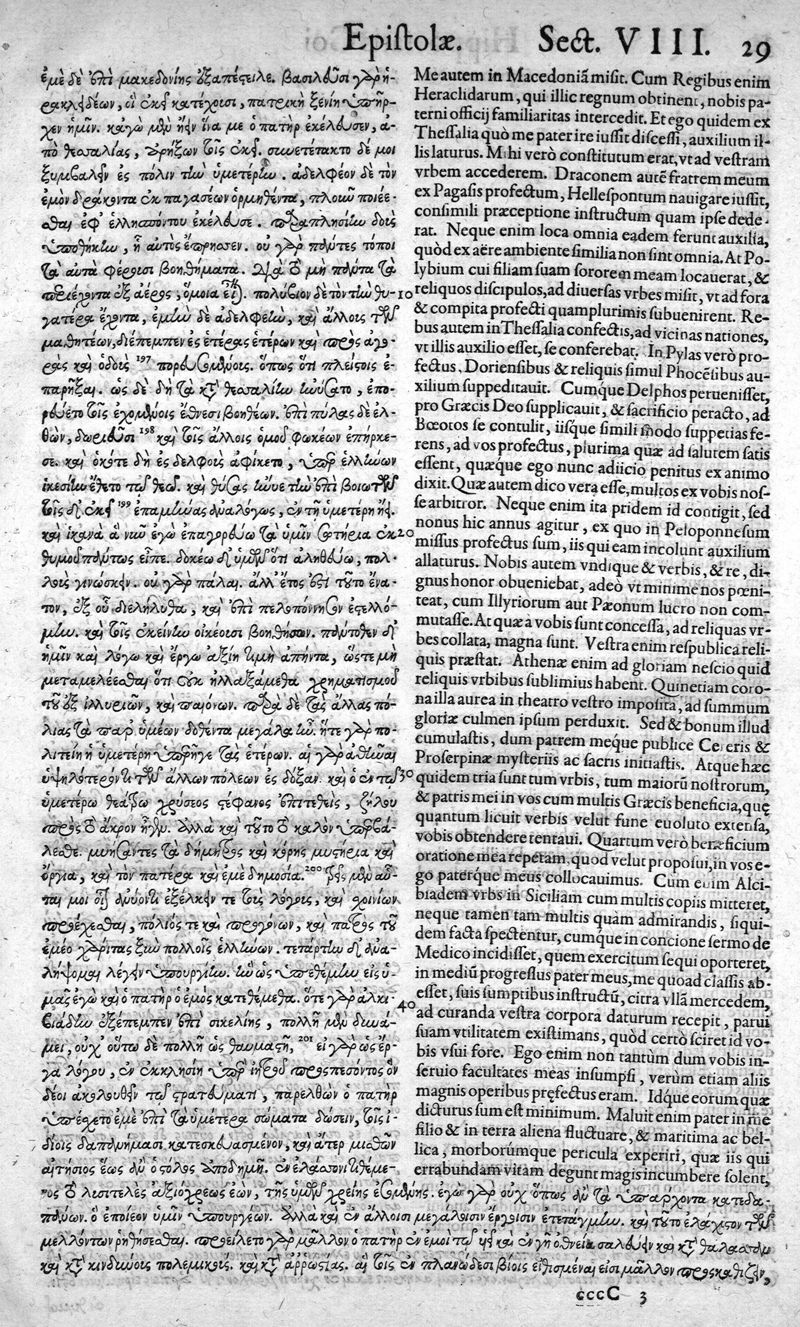 Epistolæ. Sect. VIII. 29
ἐμὲ δὲ ἐπὶ μακεδονίης ἐξαπέςειλε. βασιλεῦσι γὰρ ἡ-
ρακλῃδέων, οἳ ἐκεῖ κατέχοισι, πατρικὴ ξενίη ὑπῆρ-
χεν ἡμῖν. κἀγὼ μὲν ᾖην ἵνα με ὁ πατὴρ ἐκέλευσεν, ἀ-
πὸ θεσαλίας, ἀρήξων τοῖς ἐκεῖ. συνετέτακτο δέ μοι
ξυμβαλεῖν ἐς πόλιν τὴν ὑμετέρην. ἀδελφεὸν δὲ τὸν
ἐμὸν δράκοντα ἐκ παγασέων ὁρμηθέντα, πλοῦν ποιέε-
σθαι ἐφ' ἑλλησπόντου ἐκέλευσε. παραπλησίην δοὺς
ὑποθήκην, ᾗ αὐτὸς ἐπρησεν. οὐ γὰρ πάντες τόποι
τὰ αὐτὰ φέροισι βοηθήματα. διὰ τὸ μὴ πάντα τὰ
περιέχοντα ἐξ ἀέρος, ὅμοια εἶναι. πολύβιον δὲ τὸν τὴν θυ-
γατέρα ἔχοντα, ἐμὴν δὲ ἀδελφεὴν, καὶ ἄλλοις τῶν
μαθητέων, διέπεμπεν ἐς ἑτέρας ἑτέρων καὶ πρὸς ἀγο-
ρὰς καὶ ὁδοὶς 197 πορευομένοις. ὅπως ὅτι πλείςοις ἐ-
παρῆξαι. ὡς δὲ δὴ τὰ κατὰ θεσαλίην ἠνύσατο, ἐπο-
ρεύετο τοῖς ἐχομένοις ἔθνεσι βοηθέων. ἐπὶ πύλας δὲ ἐλ-
θὼν, δωριεῦσι 198 καὶ τοῖς ἄλλοις ὁμοῦ φωκέων ἐπήρκε-
σε. καὶ ὁκότε δὴ ἐς δελφοὶς ἀφίκετο, ὑπὲρ ἑλλήνων
ἱκεσίην ἔθετο τῷ θεῷ. καὶ θύσας
τοῖς ἐκεῖ 199 ἐπαμύνας ἀναλόγως, ἐν τῇ ὑμετέρῃ ἧν.
καὶ ἱκανὰ ἃ νῦν ἐγὼ ἐπαγορεύω τὰ ὑμῖν σωτήρια ἐκ
θυμοῦ πάντως εἶπε. δοκέω δ' ὑμέων ὅτι ἀληθεύω, πολ-
λοὶς γινώσκειν. οὐ γὰρ πάλαι. ἀλλ' ἔτος ἐπὶ τοῦτο ἔνα-
τον, ἐξ οὗ διελήλυθα, καὶ ἐπὶ πελοπόννησον ἐςελλό-
μην. καὶ τοῖς ἐκείνην οἰκέοισι βοηθήσων. πάντοθεν δ'
ἡμῖν καὶ λόγῳ καὶ ἔργῳ ἀξίη τιμὴ ἀπήντα, ὥςτε μὴ
μεταμελέεσθαι ὅτι οὐκ ἠλλαξάμεθα χρηματισμοῦ
τοῦ ἐξ ἰλλυριῶν, καὶ παιόνων. παρὰ δὲ τὰς ἄλλας πό-
λιας τὰ παρ' ὑμέων δοθέντα μεγάλα ἦν. ἥτε γὰρ πο-
λιτείη ἡ ὑμετέρη ὑπερῆγε τὰς ἑτέρων. αἱ γὰρ ἀθῆναι
ὑψηλότερόν τι τῶν ἄλλων πολέων ἐς δόξαν. καὶ ὁ ἐν τῷ
ὑμετέρῳ θεάτρῳ χρύσεος ςέφανος ἐπιτεθεὶς, ζήλου
πρὸς τὸ ἄκρον ἦγεν. ἀλλὰ καὶ τοῦτο τὸ καλὸν ὑπερβά-
λεσθε. μυήσαντες τὰ δήμητρος καὶ κόρης μυςήρια καὶ
ὄργια, καὶ τὸν πατέρα καὶ ἐμὲ δημοσίᾳ. 200 τρεῖς μὲν αὗ-
ται μοι
προσέχεσθαι, πόλιός τε καὶ προγόνων, καὶ πατρὸς τοῦ
ἐμέο χάριτας ξὺν πολλοῖς ἑλλήνων. τετάρτην δ' ἀνα-
λήψομαι λέγειν ὑπουργίην. ἣν ὡς ὑπεθέμην εἰς ὑ-
μᾶς ἐγὼ καὶ ὁ πατὴρ ὁ ἐμὸς κατεθέμεθα. ὅτε γὰρ ἀλκι-
βιάδην ἐξέπεμπεν ἐπὶ σικελίης, πολλῇ μὲν δυνά-
μει, οὐχ' οὕτω δὲ πολλῇ ὡς θαυμαςῇ, 201 εἴ γὰρ ὡς ἔρ-
γα λόγου, ἐν ἐκκλησίῃ ὑπὲρ ἰητροῦ προσπεσόντος ὃν
δέοι ἀκολουθεῖν τῷ ςρατεύματι, παρελθὼν ὁ πατὴρ
ὑπέσχετο ἐμὲ ἐπὶ τὰ ὑμέτερα σώματα δώσειν, τοῖς ἰ-
δίοις δαπανήμασι κατεσκευασμένον, καὶ ἄτερ μισθῶν
αἰτήσιος ἕως ἂν ὁ ςόλος ἀποδημῇ. ἐν ἐλάσσονι τιθέμε-
Me autem in Macedoniā misit. Cum Regibus enim
Heraclidarum, qui illic regnum obtinent, nobis pa-
terni officij familiaritas intercedit. Et ego quidem ex
Thessalia quò me pater ire iussit discessi, auxilium il-
lis laturus. Mihi verò constitutum erat, vt ad vestram
vrbem accederem. Draconem autē fratrem meum
ex Pagasis profectum, Hellespontum nauigare iussit,
consimili præceptione instructum quam ipse dede-
rat. Neque enim loca omnia eadem ferunt auxilia,
quòd ex aëre ambiente similia non sint omnia. At Po-
10 lybium cui filiam suam sororem meam locauerat, &
reliquos discipulos, ad diuersas vrbes misit, vt ad fora
& compita profecti quamplurimis subuenirent. Re-
bus autem in Thessalia confectis, ad vicinas nationes,
vt illis auxilio esset, se conferebat. In Pylas verò pro-
fectus, Doriensibus & reliquis simul Phocēsibus au-
xilium suppeditauit. Cumque Delphos peruenisset,
pro Græcis Deo supplicauit, & sacrificio peracto, ad
Bœotos se contulit, iisque simili modo suppetias fe-
rens, ad vos profectus, plurima quæ ad salutem satis
essent, quæque ego nunc adiicio penitus ex animo
dixit. Quæ autem dico vera esse, multos ex vobis nos-
se arbitror. Neque enim ita pridem id contigit, sed
20 nonus hic annus agitur, ex quo in Peloponnesum
missus profectus sum, iis qui eam incolunt auxilium
allaturus. Nobis autem vndique & verbis, & re, di-
gnus honor obueniebat, adeò vt minime nos pœni-
teat, cum Illyriorum aut Pæonum lucro non com-
mutasse. At quæ à vobis sunt concessa, ad reliquas vr-
bes collata, magna sunt. Vestra enim respublica reli-
quis præstat. Athenæ enim ad gloriam nescio quid
reliquis vrbibus sublimius habent. Quinetiam coro-
na illa aurea in theatro vestro imposita, ad summum
gloriæ culmen ipsum perduxit. Sed & bonum illud
cumulastis, dum patrem meque publice Cereris &
Proserpinæ mysteriis ac sacris initiastis. Atque hæc
30 quidem tria sunt tum vrbis, tum maiorū nostrorum,
& patris mei in vos cum multis Græcis beneficia, quę
quantum licuit verbis velut fune euoluto extensa,
vobis obtendere tentaui. Quartum verò beneficium
oratione mea repetam, quod velut proposui, in vos e-
go paterque meus collocauimus. Cum enim Alci-
biadem vrbs in Siciliam cum multis copiis mitteret,
neque tamen tam multis quàm admirandis, siqui-
dem facta spectentur, cumque in concione sermo de
Medico incidisset, quem exercitum sequi oporteret,
in mediū progressus pater meus, me quoad classis ab-
40 esset, suis sumptibus instructū, citra vllā mercedem,
ad curanda vestra corpora daturum recepit, parui
suam vtilitatem existimans, quòd certò sciret id vo-
bis vsui fore. Ego enim non tantùm dum vobis in-
seruio facultates meas insumpsi, verùm etiam aliis
magnis operibus præfectus eram. Idque eorum quæ
dicturus sum est minimum. Maluit enim pater in me
filio & in terra aliena fluctuare, & maritima ac bel-
lica, morborumque pericula experiri, quæ iis qui
errabundam vitam degunt magis incumbere solent,
νος τὸ λυσιτελὲς ἀξιόχρεως ἐὼν, τῆς ὑμῶν χρείης ἐσομένης. ἐγὼ γὰρ οὐχ ὅπως ἂν τὰ ὑπάρχοντα κατεδα-
πάνων. ὃ ἐποίεον ὑμῖν ὑπουργέων. ἀλλὰ καὶ ἐν ἄλλοισι μεγάλοισιν ἔργοισιν ἐτετάγμην. καὶ τοῦτο ἐλάχιςον τῶν
μελλόντων ῥηθήσεσθαι. προείλετο γὰρ μᾶλλον ὁ πατὴρ ἐν ἐμοὶ τῷ υἱεῖ καὶ ἐν γῇ ὀθνείᾳ σαλεύειν καὶ κατὰ θάλασσαν
καὶ κατὰ κινδύνοις πολεμικοὶς. καὶ κατὰ ἀῤῥωςίας. αἳ τοῖς ἐν πλανώδεσι βίοις εἰθισμέναι εἰσὶ μᾶλλον προσκαθίζειν,
cccC 3